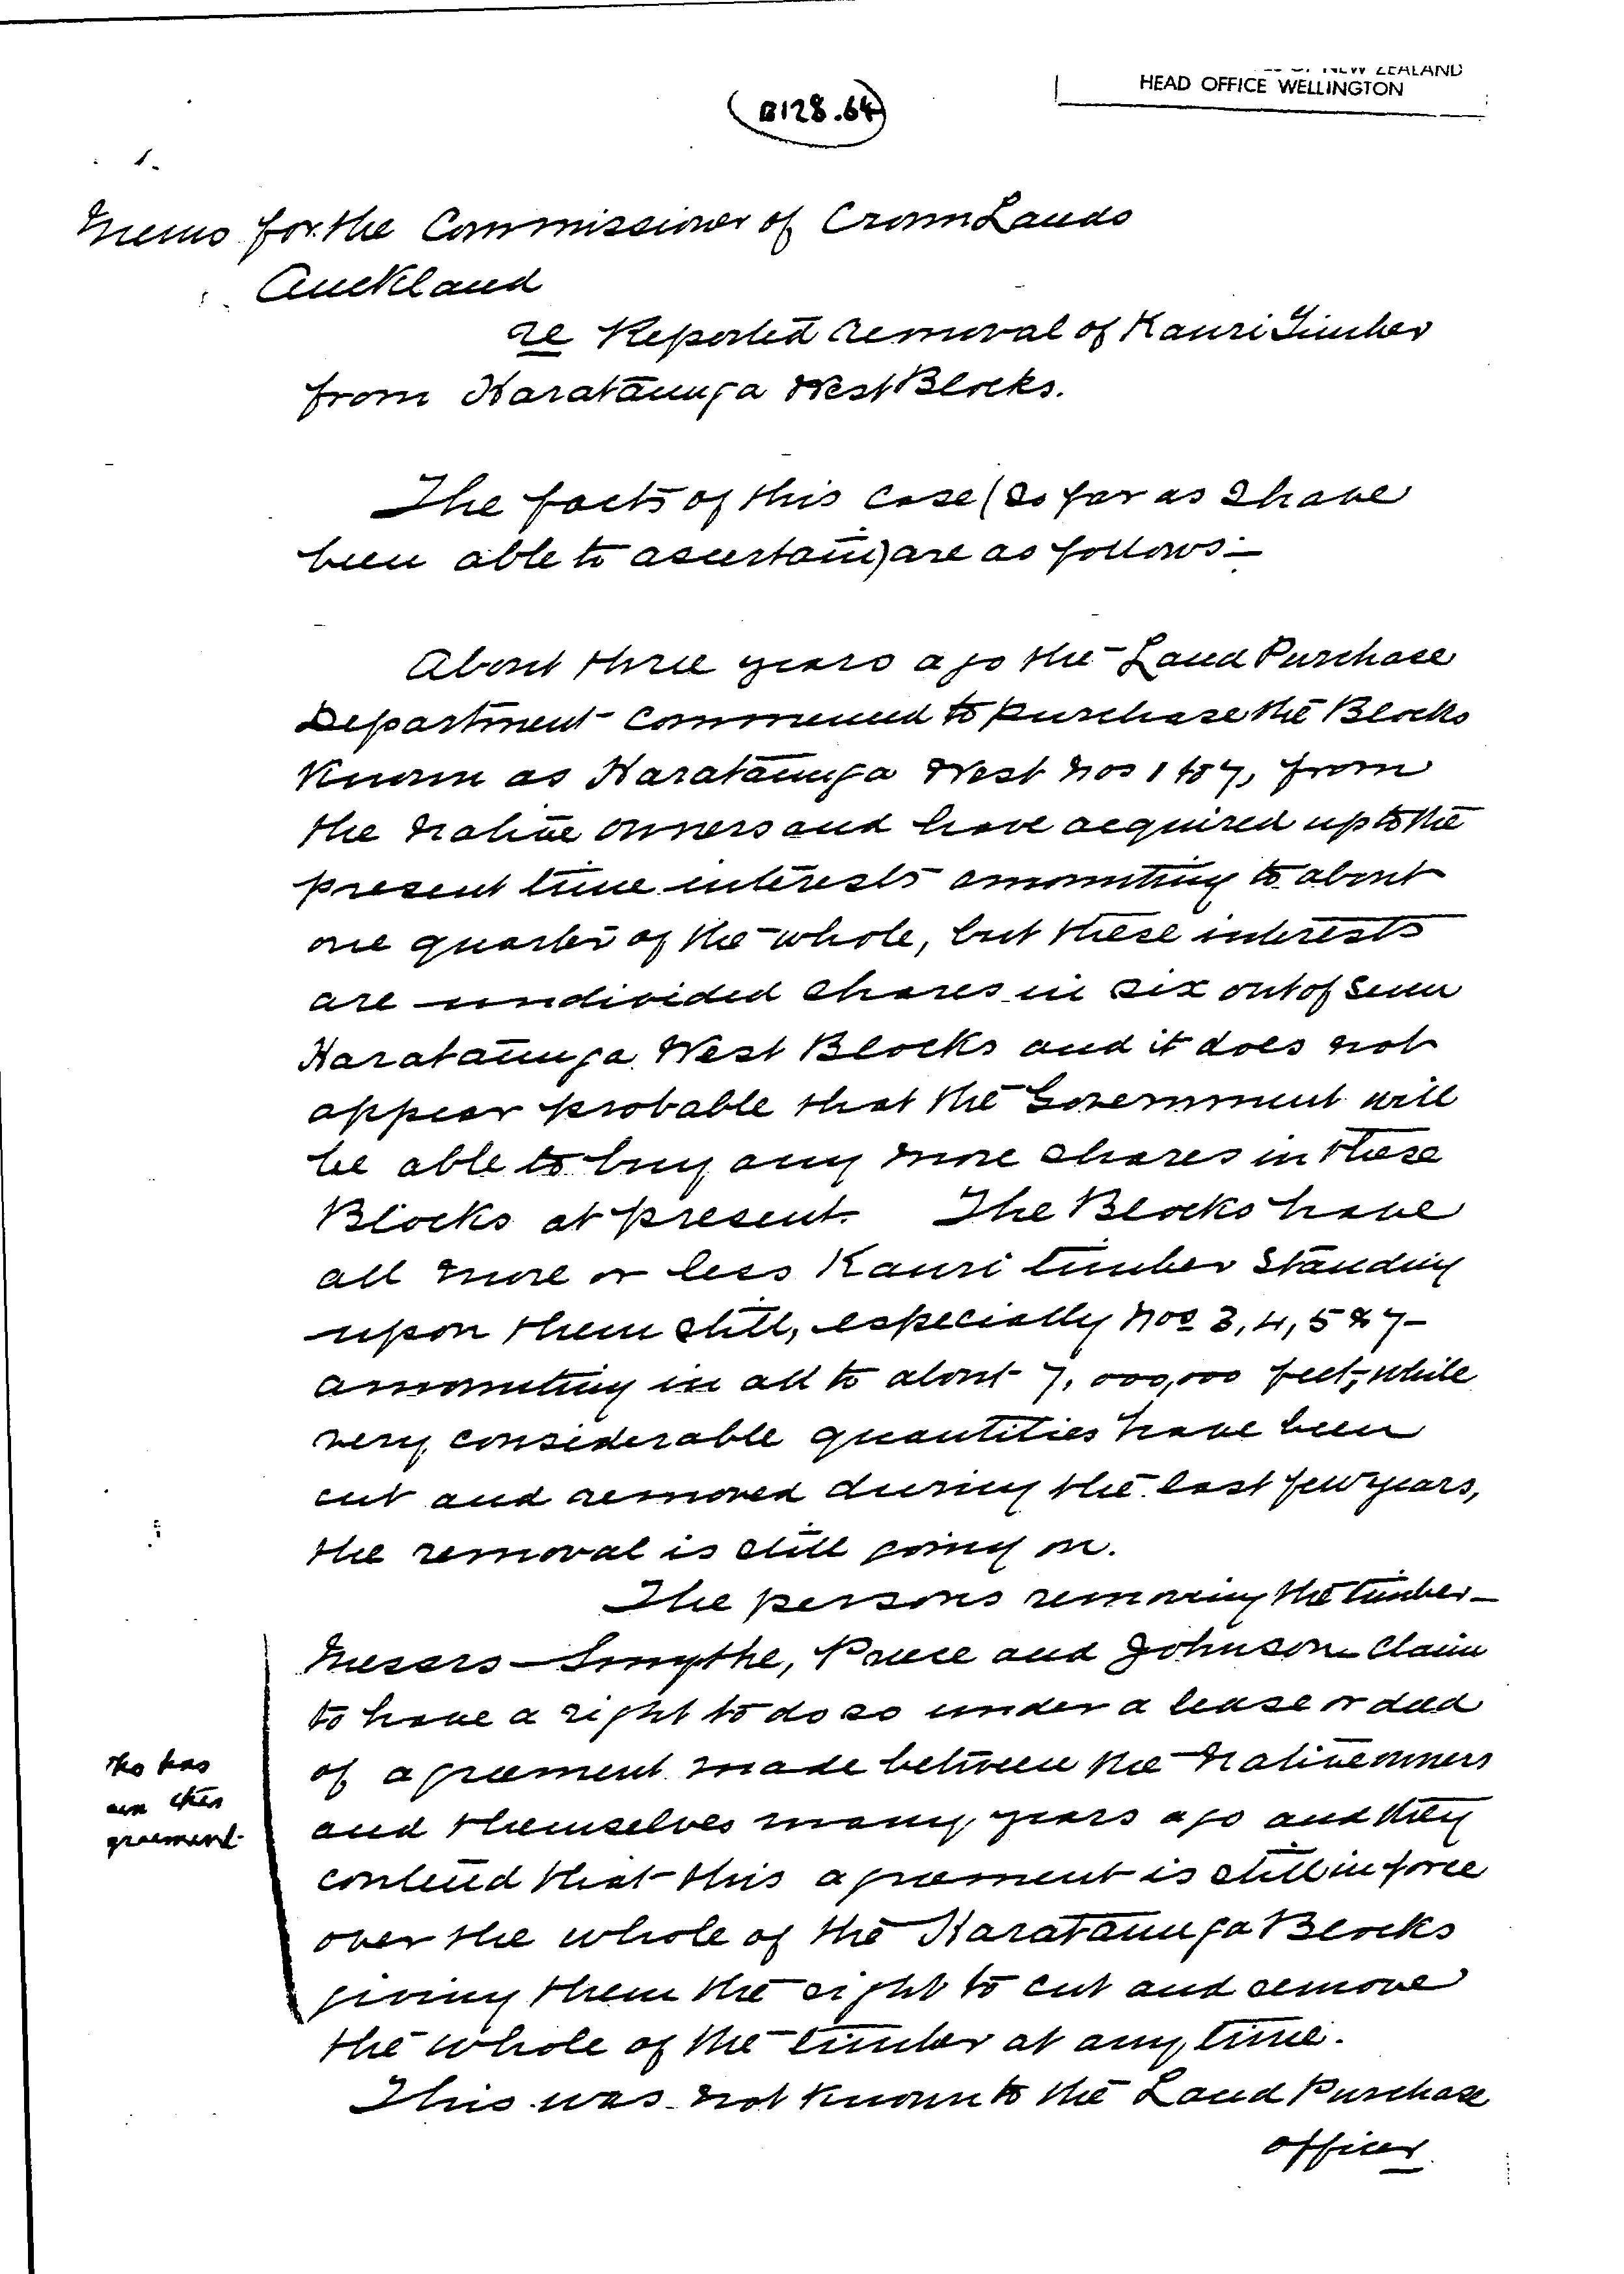 NEW ZEALAND
HEAD OFFICE WELLINGTON
B128.64
1.
Memo for the Commissioner of Crown Lands
Auckland
re Reported removal of Kauri Timber
from Harataunga West Blocks.
The facts of this case (so far as I have
been able to ascertain) are as follows:—
About three years ago the Land Purchase
Department commenced to purchase the Blocks
Known as Harataunga West Nos 1 to 7, from
the Native owners and have acquired up to the
present time interests amounting to about
one quarter of the whole, but these interests
are undivided shares in six out of seven
Harataunga West Blocks and it does not
appear probable that the Government will
be able to buy any more shares in these
Blocks at present. The Blocks have
all more or less Kauri timber standing
upon them still, especially Nos 3, 4, 5 & 7—
amounting in all to about 7,000,000 feet, while
very considerable quantities have been
cut and removed during the last few years,
the removal is still going on.
The persons removing the timber—
Messrs Smythe, and Johnson claim
to have a right to do so under a lease or deed
of agreement made between the Native owners
and themselves many years ago and they
contend that this agreement is still in force
over the whole of the Harataunga Blocks
giving them the right to cut and remove
the whole of the timber at any time.
This was not known to the Land Purchase
officer
has
greement